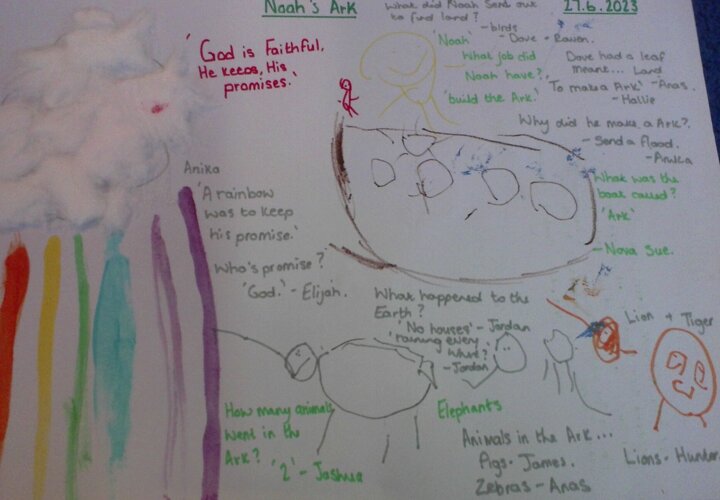 Noah's Ark
27.6.2023
'God is Faithful,
He keeps, His
promises.'
What did Noah Send out
to find land?
- birds
'Noah' - Dave + Raven.
What job did
Noah have?
'build the Ark.'
Dave had a leaf
means... Land
To make a Ark' - Anas.
- Hallie
Why did he make a Ark?
- Send a flood.
- Anika
What was the
boat called?
'Ark'
- Nova Sue.
Anika
'A rainbow
was to keep
his promise.'
Who's promise?
'God.' - Elijah.
What happened to the
Earth?
'No houses' - Jordan
'raining every
where?'
- Jordan
Lion + Tiger
How many animals
went in the
Ark?
'2' - Joshua
Elephants
Animals in the Ark...
Pigs - James.
Zebras - Anas
Lions - Hunter